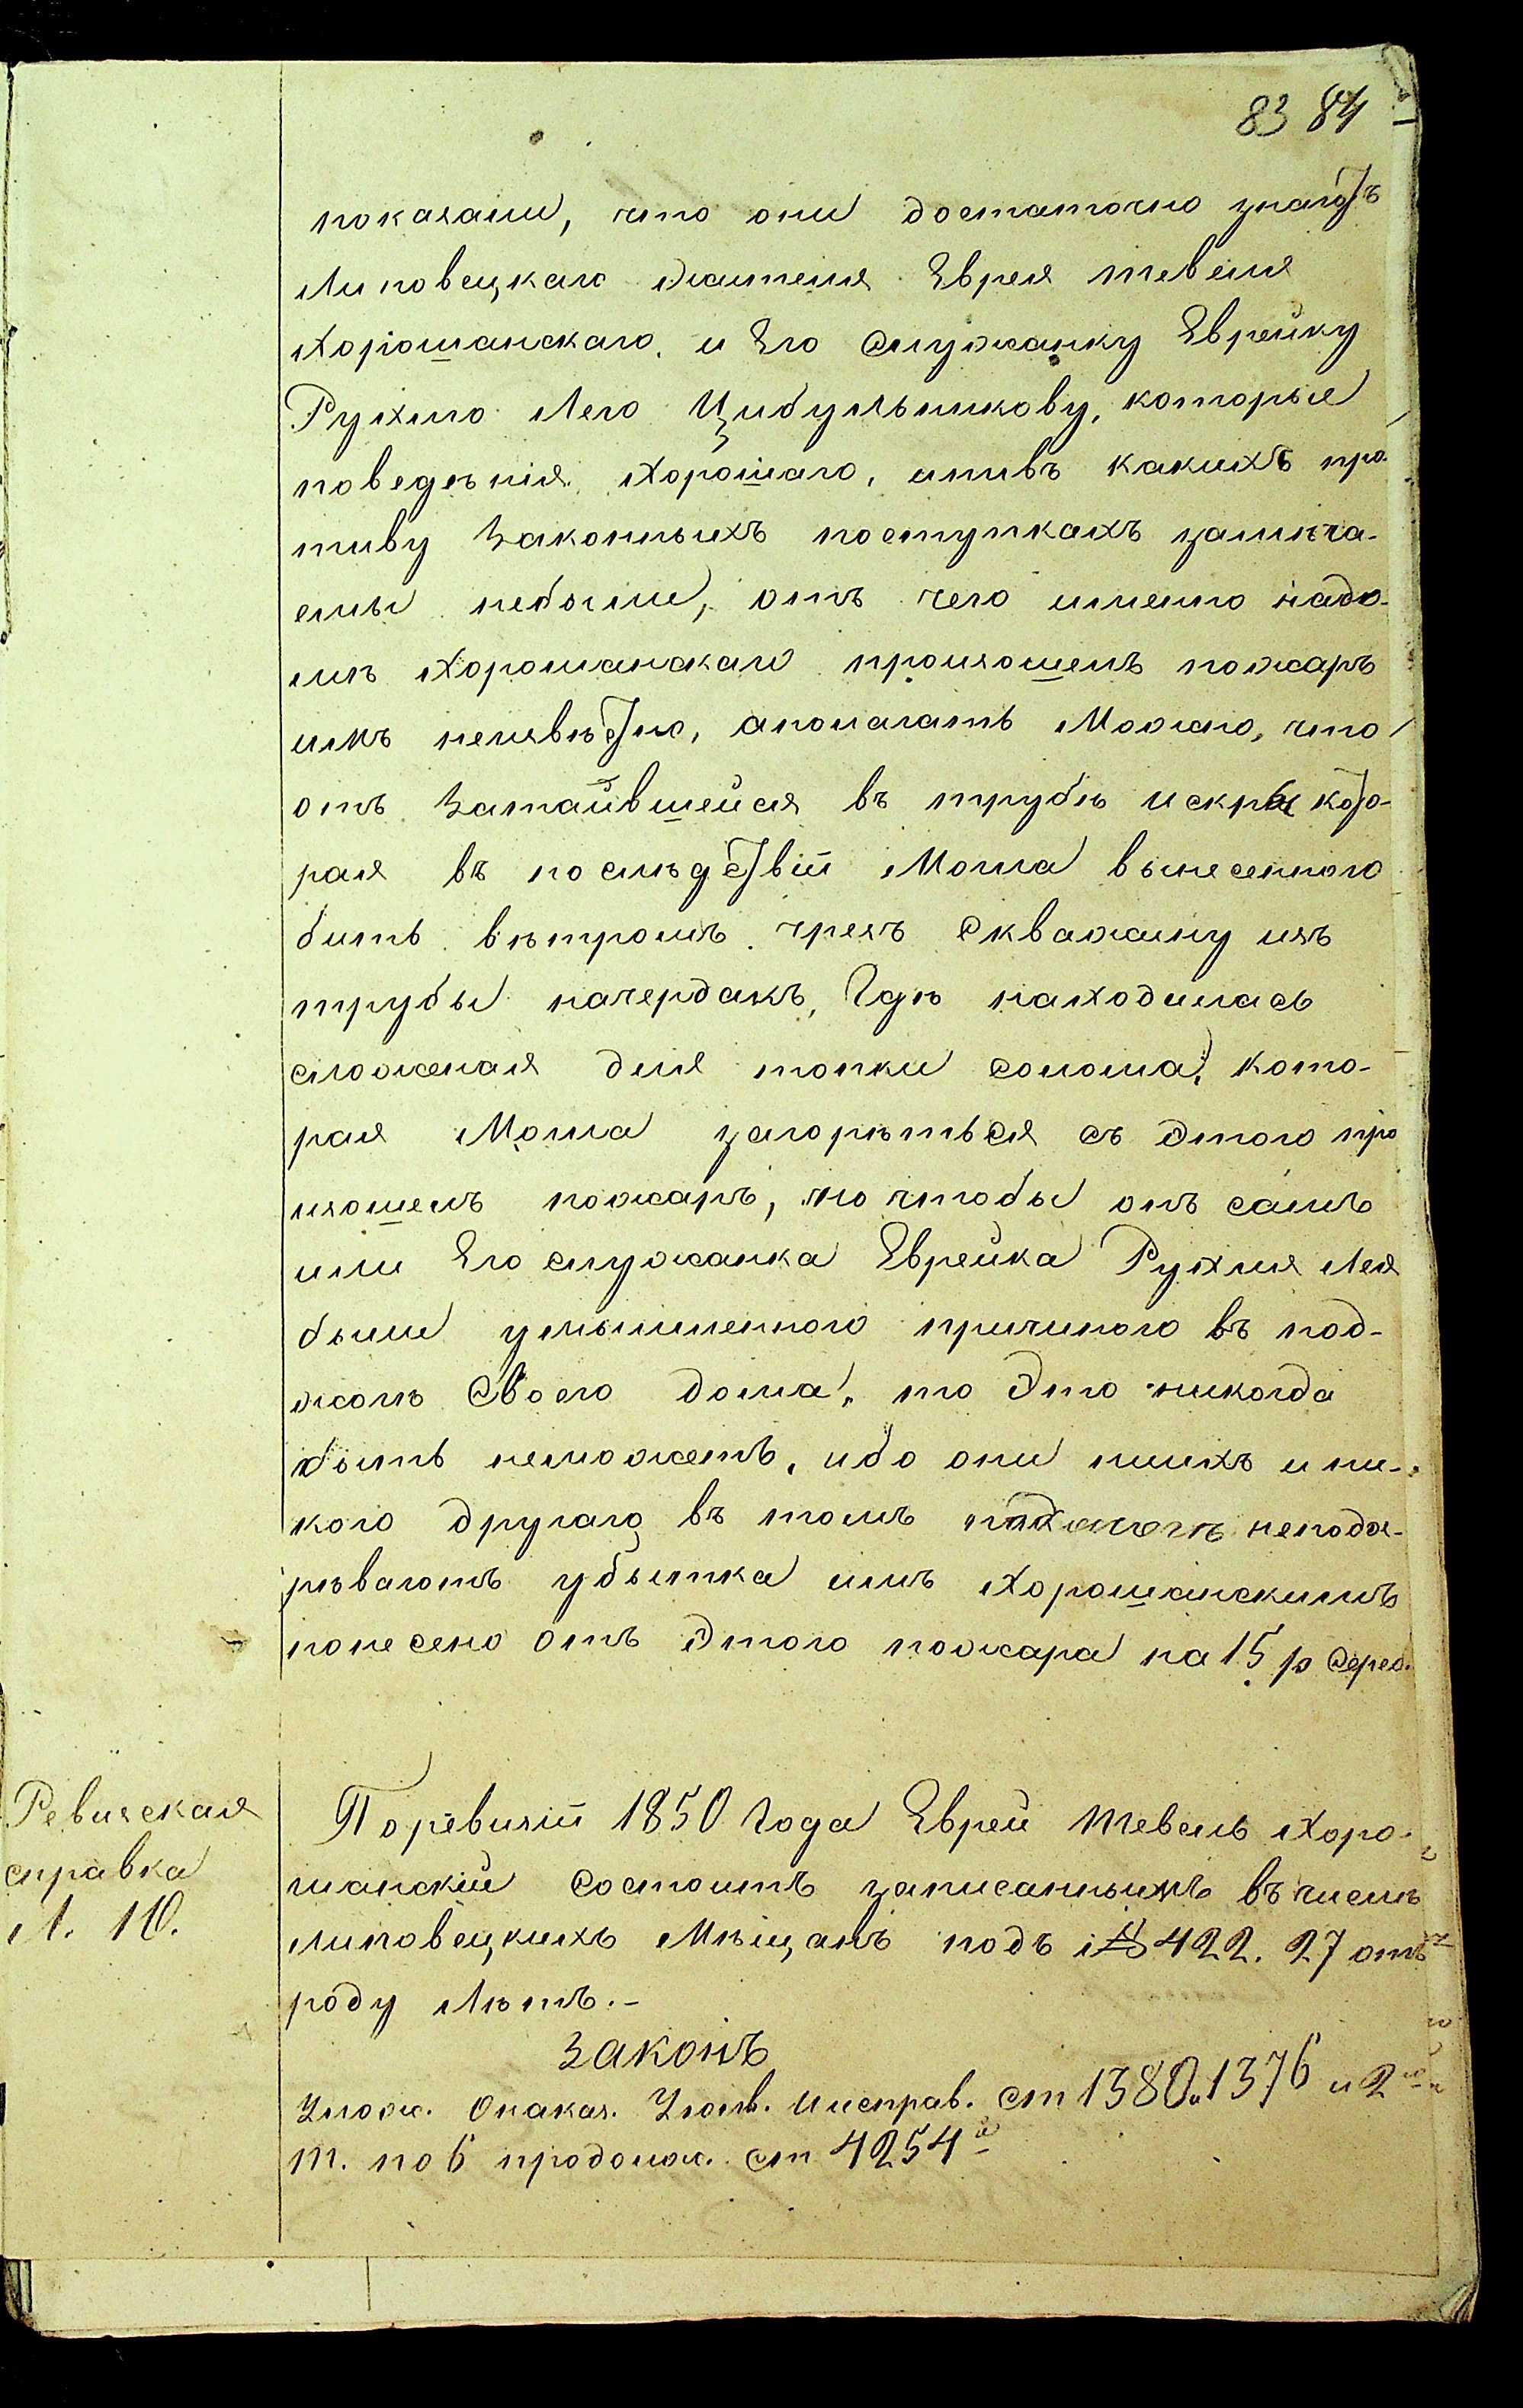 83 84
показали, что они достаточно знаютъ
Липовецкаго жителя Еврея Тевеля
Хорошанскаго, и Его служанку Еврейку
Рухлю Лею Цибульникову, которые
поведенія Хорошаго, инивъ какихъ про-
тиву Законныхъ поступкахъ замѣча-
емы небыли, отъ чего именно надо-
мѣ Хорошанскаго произошелъ пожаръ
имъ неизвѣстно, аполагать Можно, что
отъ Затаившейся въ трубѣ искры кото-
рая въ послѣдствіи Могла вынесенною
бить вѣтромъ чрезъ Скважину изъ
трубы начердакъ, Гдѣ находилась
сложеная для топки солома, кото-
рая Могла загорѣться съ Этого про
изошелъ пожаръ, но чтобы онъ самъ
или Его служанка Еврейка Рухля Лея
были умышленною причиною въ под-
жогѣ Своего дома, то Это никогда
быть неможетъ, ибо они нихъ и ни-
кого другаго въ томъ поджогѣ неподоз-
рѣваютъ убытка имъ Хорошанскимъ
понесено отъ Этого пожара на 15 р Сереб.
Ревизская
справка
Л. 10.
Поревизіи 1850 Года Еврей Тевель Хоро-
шанскій Состоитъ записаннымъ въ числѣ
липовецкихъ Мѣщанъ подъ № 422. 27 отъ
роду Лѣтъ.-
Законъ
Улож. Онаказ. Уголв. Иисправ. ст 1380. 1376 и 2
Т. по 6 продолж. ст 4254й